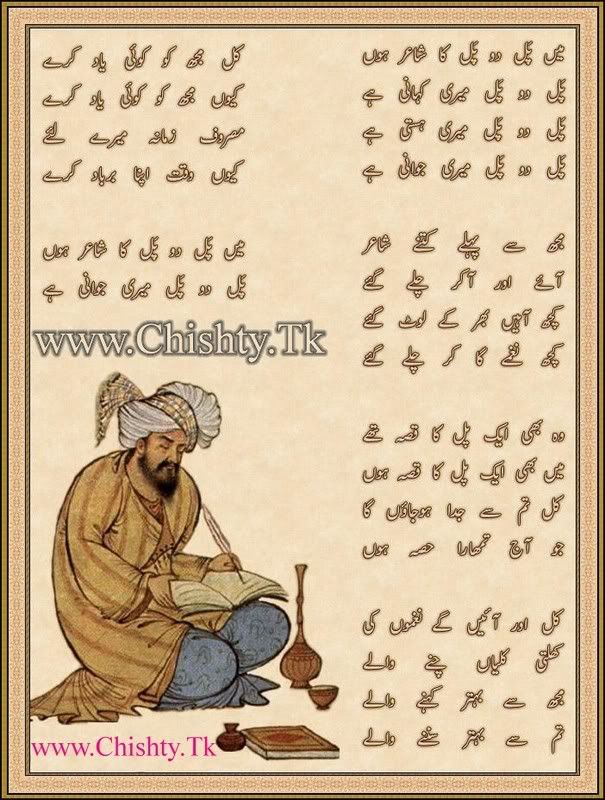 میں پَل دو پَل کا شاعر ہوں
پَل دو پَل میری کہانی ہے
پَل دو پَل میری ہستی ہے
پَل دو پَل میری جوانی ہے
مجھ سے پہلے کتنے شاعر
آئے اور آکر چلے گئے
کچھ آہیں بھر کے لوٹ گئے
کچھ نغمے گا کر چلے گئے
وہ بھی ایک پل کا قصہ تھے
میں بھی ایک پل کا قصہ ہوں
کل تم سے جدا ہوجاؤں گا
جو آج تمھارا حصہ ہوں
کل اور آئیں گے نغموں کی
کھلتی کلیاں چننے والے
مجھ سے بہتر کہنے والے
تم سے بہتر سننے والے
کل مجھ کو کوئی یاد کرے
کیوں مجھ کو کوئی یاد کرے
مصروف زمانہ میرے لئے
کیوں وقت اپنا برباد کرے
میں پَل دو پَل کا شاعر ہوں
پَل دو پَل میری جوانی ہے
www.Chishty.Tk
www.Chishty.Tk